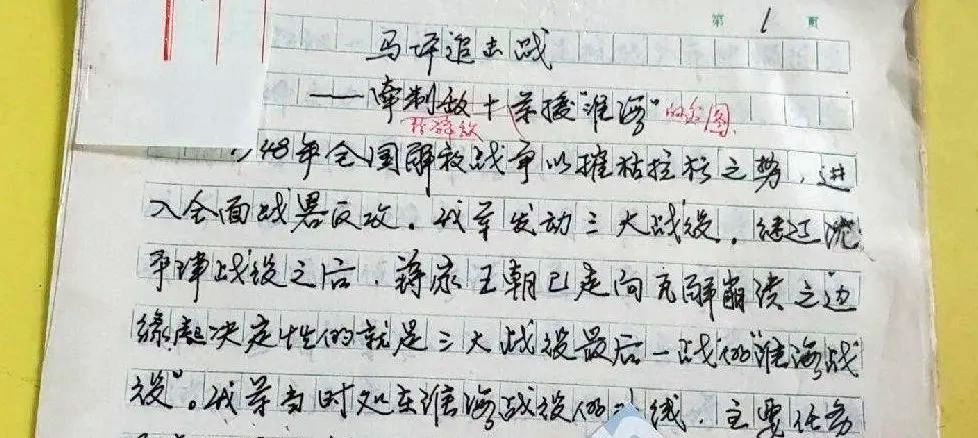 第 1 页
马坪追击战
——牵制敌十余援"淮海"的企图
粉碎敌
48年全国解放战争以摧枯拉朽之势，进
入全面战略反攻。我军发动三大战役，经过沈
平津战役之后，蒋家王朝已走向瓦解崩溃之边
缘起决定性的就是三大战役最后一战的"淮海战
役"。我军当时处在淮海战役的 线，主要任务